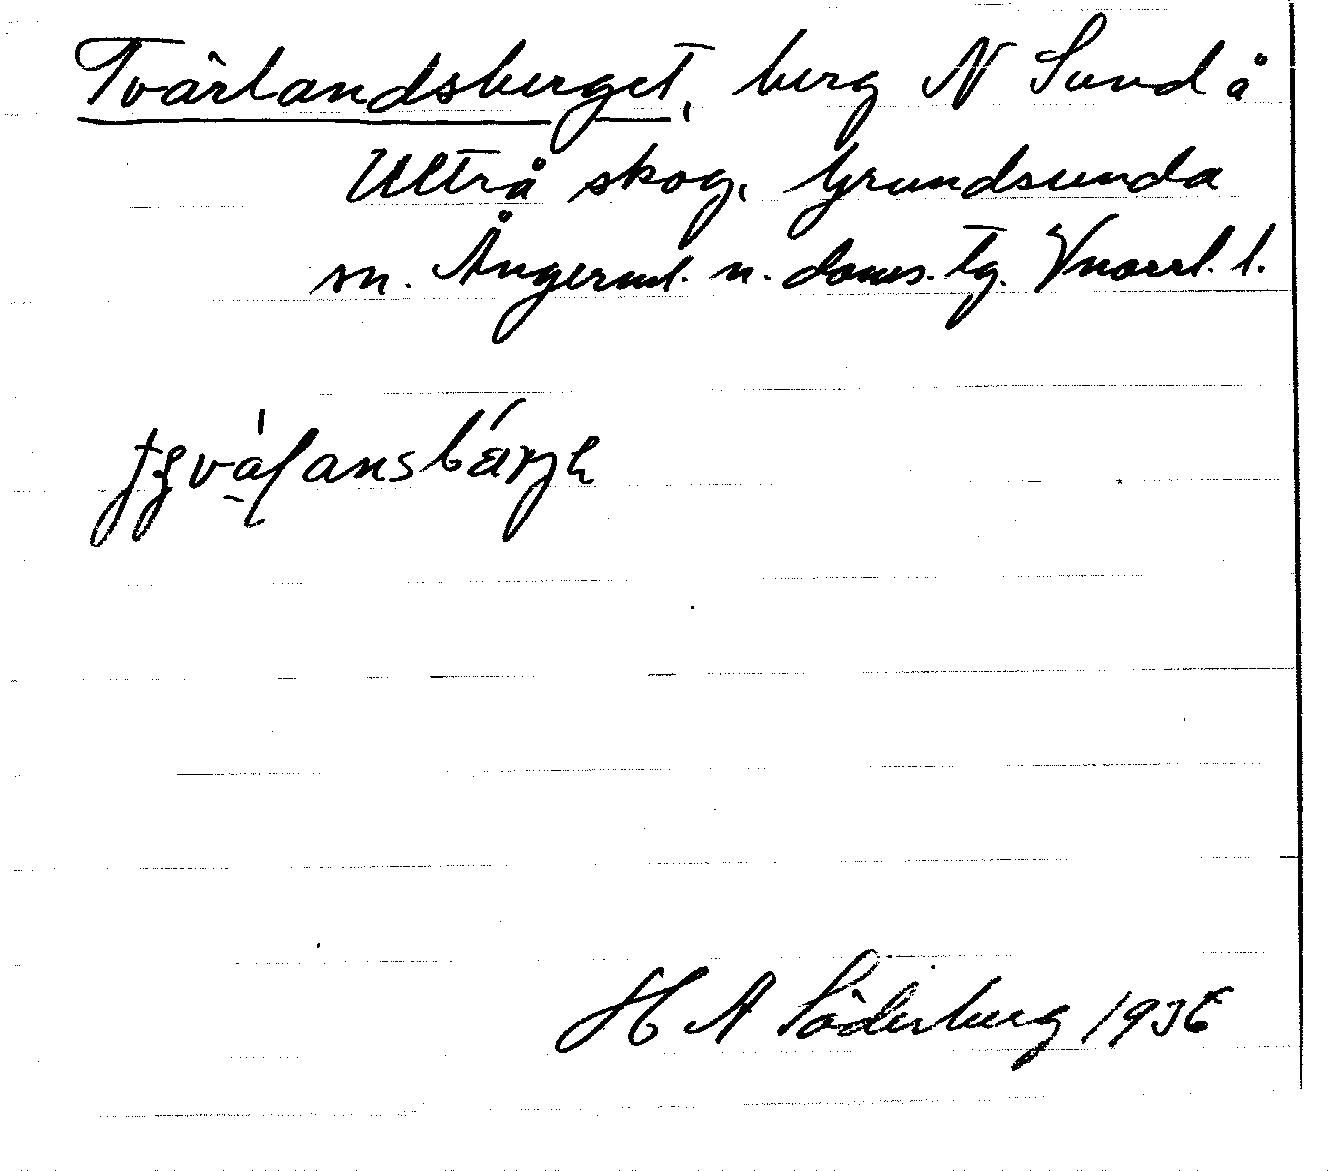 Tvärlandsberget, berg N Sund å
Ulträ skog, Grundsunda
sn. Ångerml. n. doms. tg. Vnorrl. l.
H A Söderberg 1936